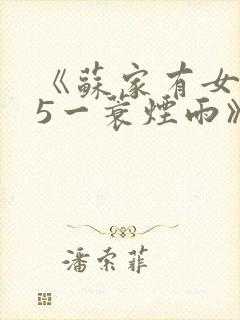 《蘇家有女
5一蓑煙雨》
潘索菲